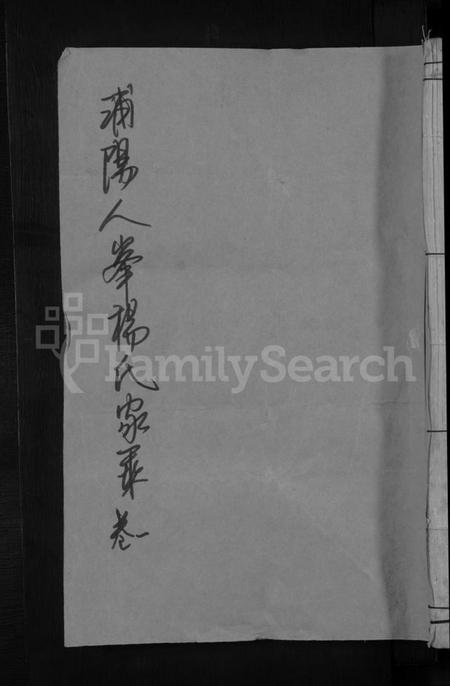 浦陽人峯楊氏家乘卷一
FamilySearch